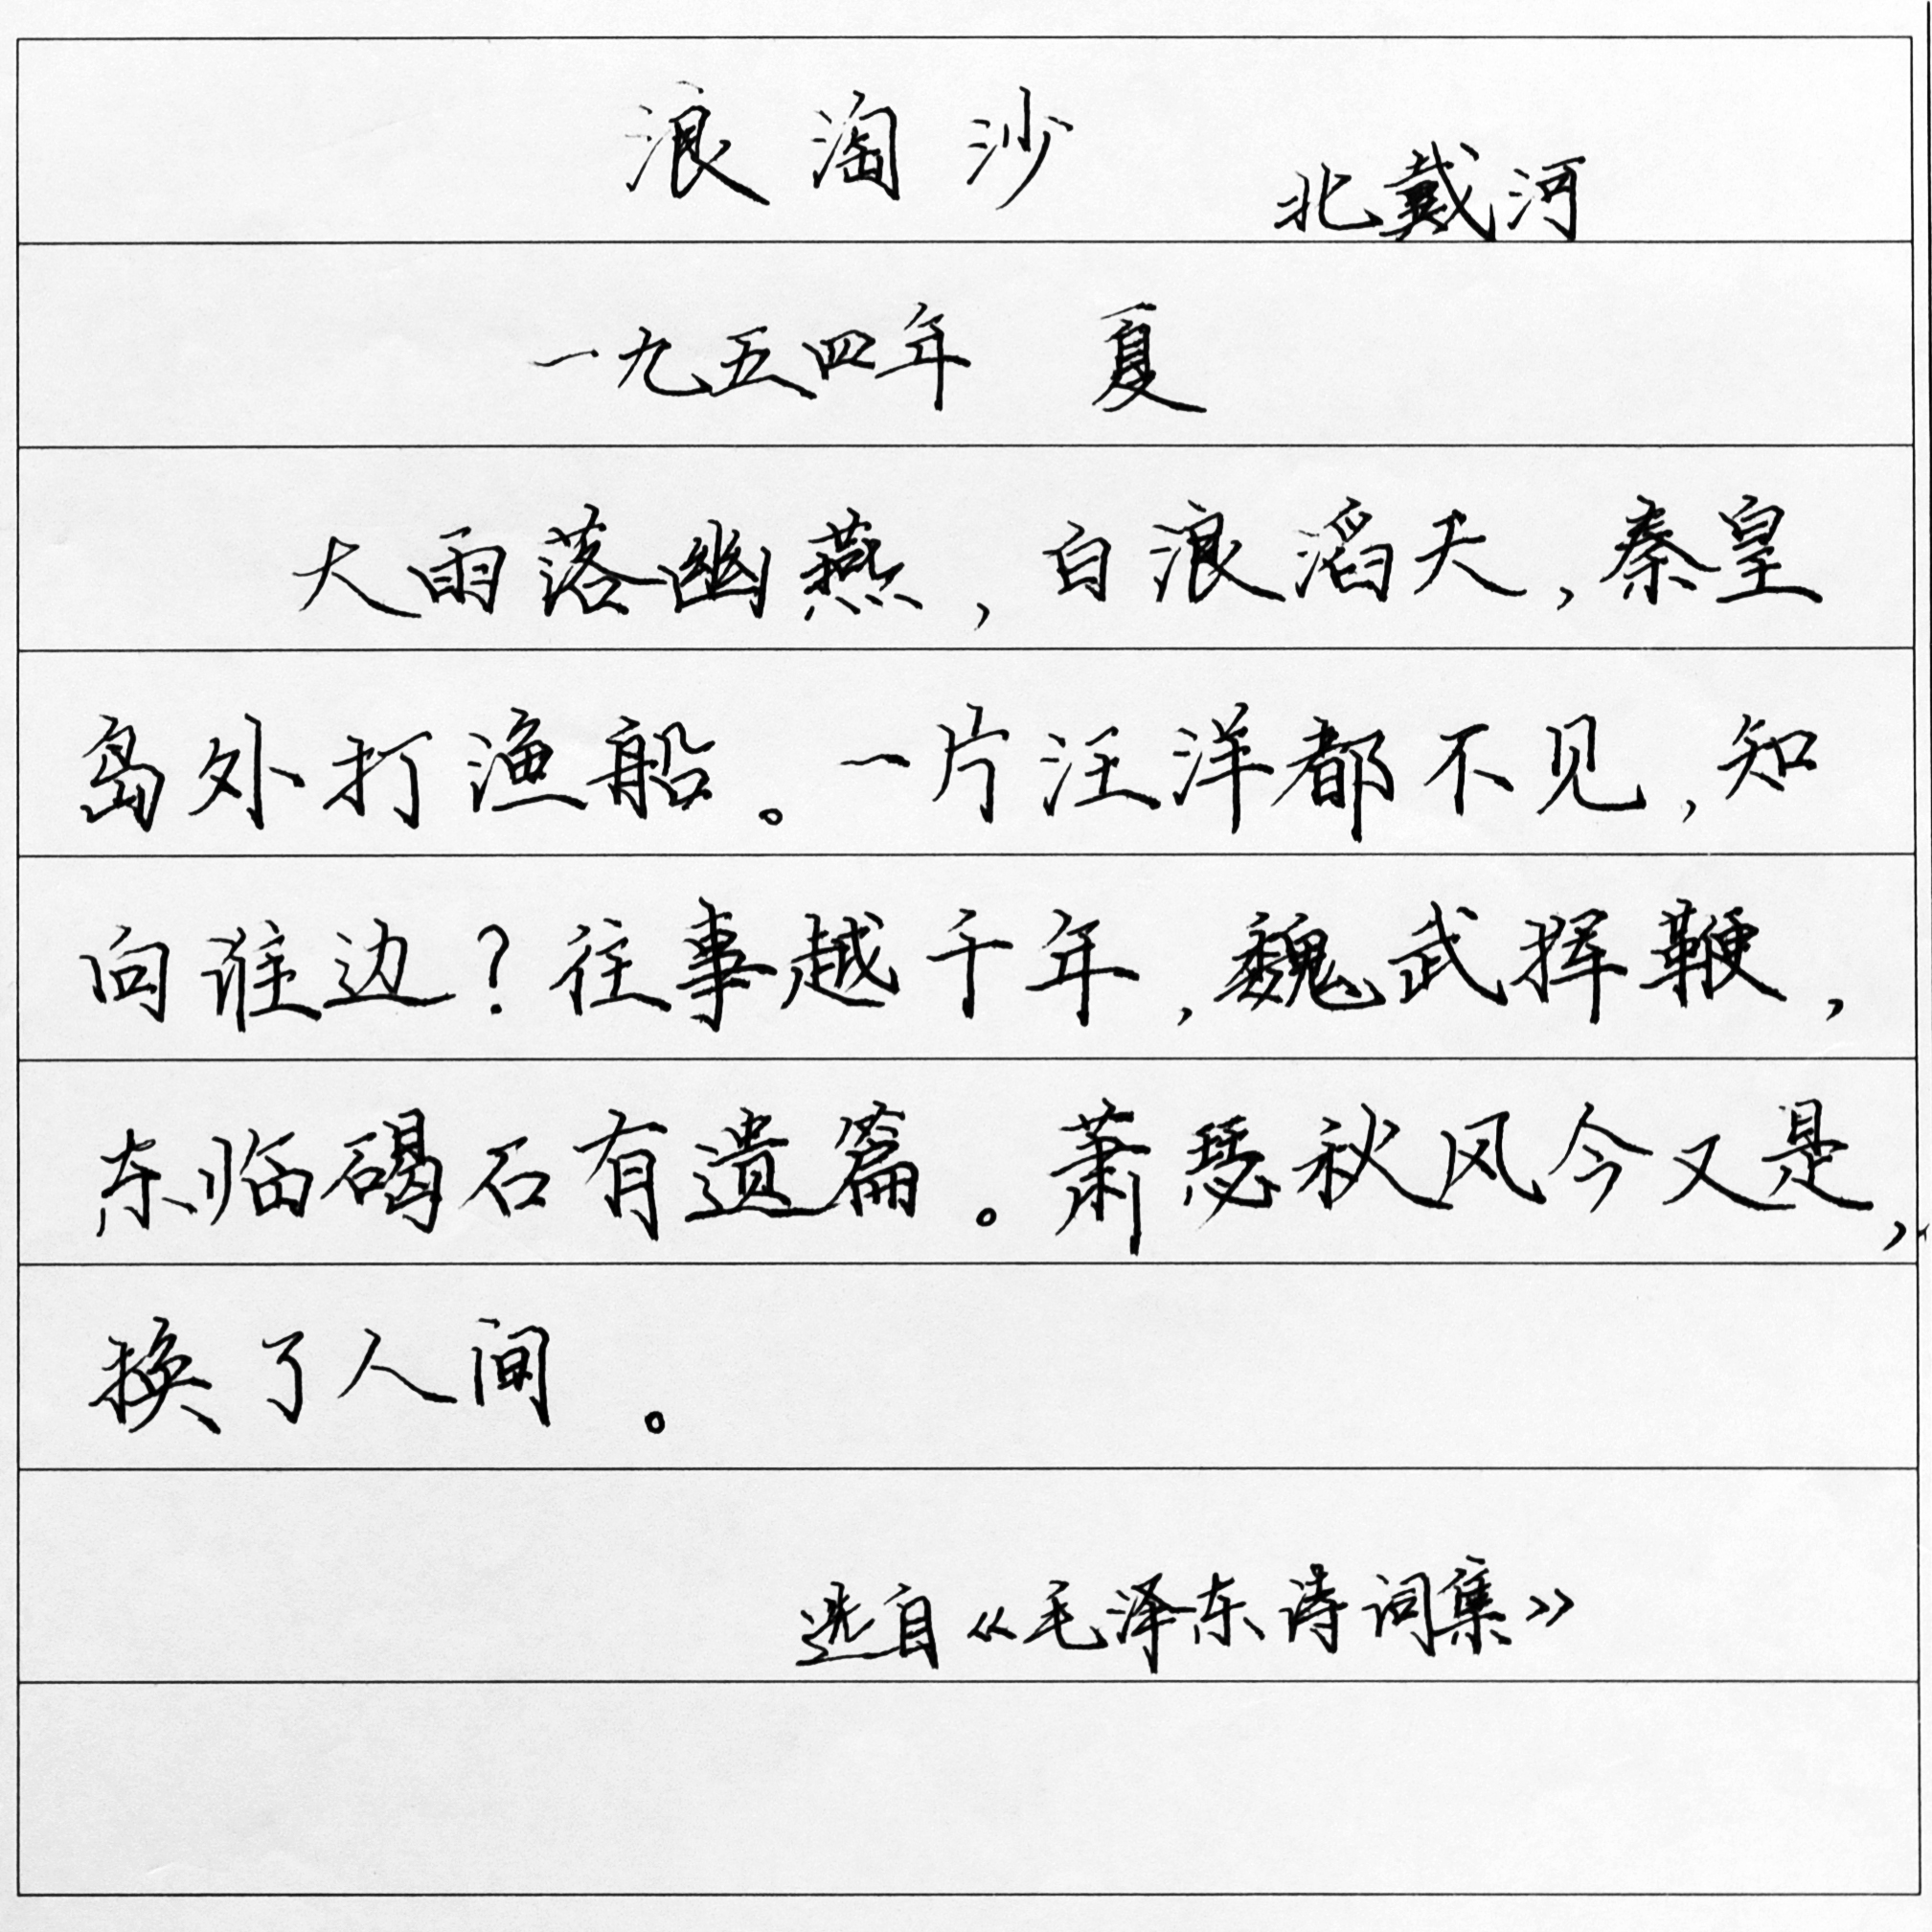 浪淘沙 北戴河
一九五四年 夏
大雨落幽燕，白浪滔天，秦皇
岛外打渔船。一片汪洋都不见，知
向谁边？往事越千年，魏武挥鞭，
东临碣石有遗篇。萧瑟秋风今又是，
换了人间。
选自《毛泽东诗词集》